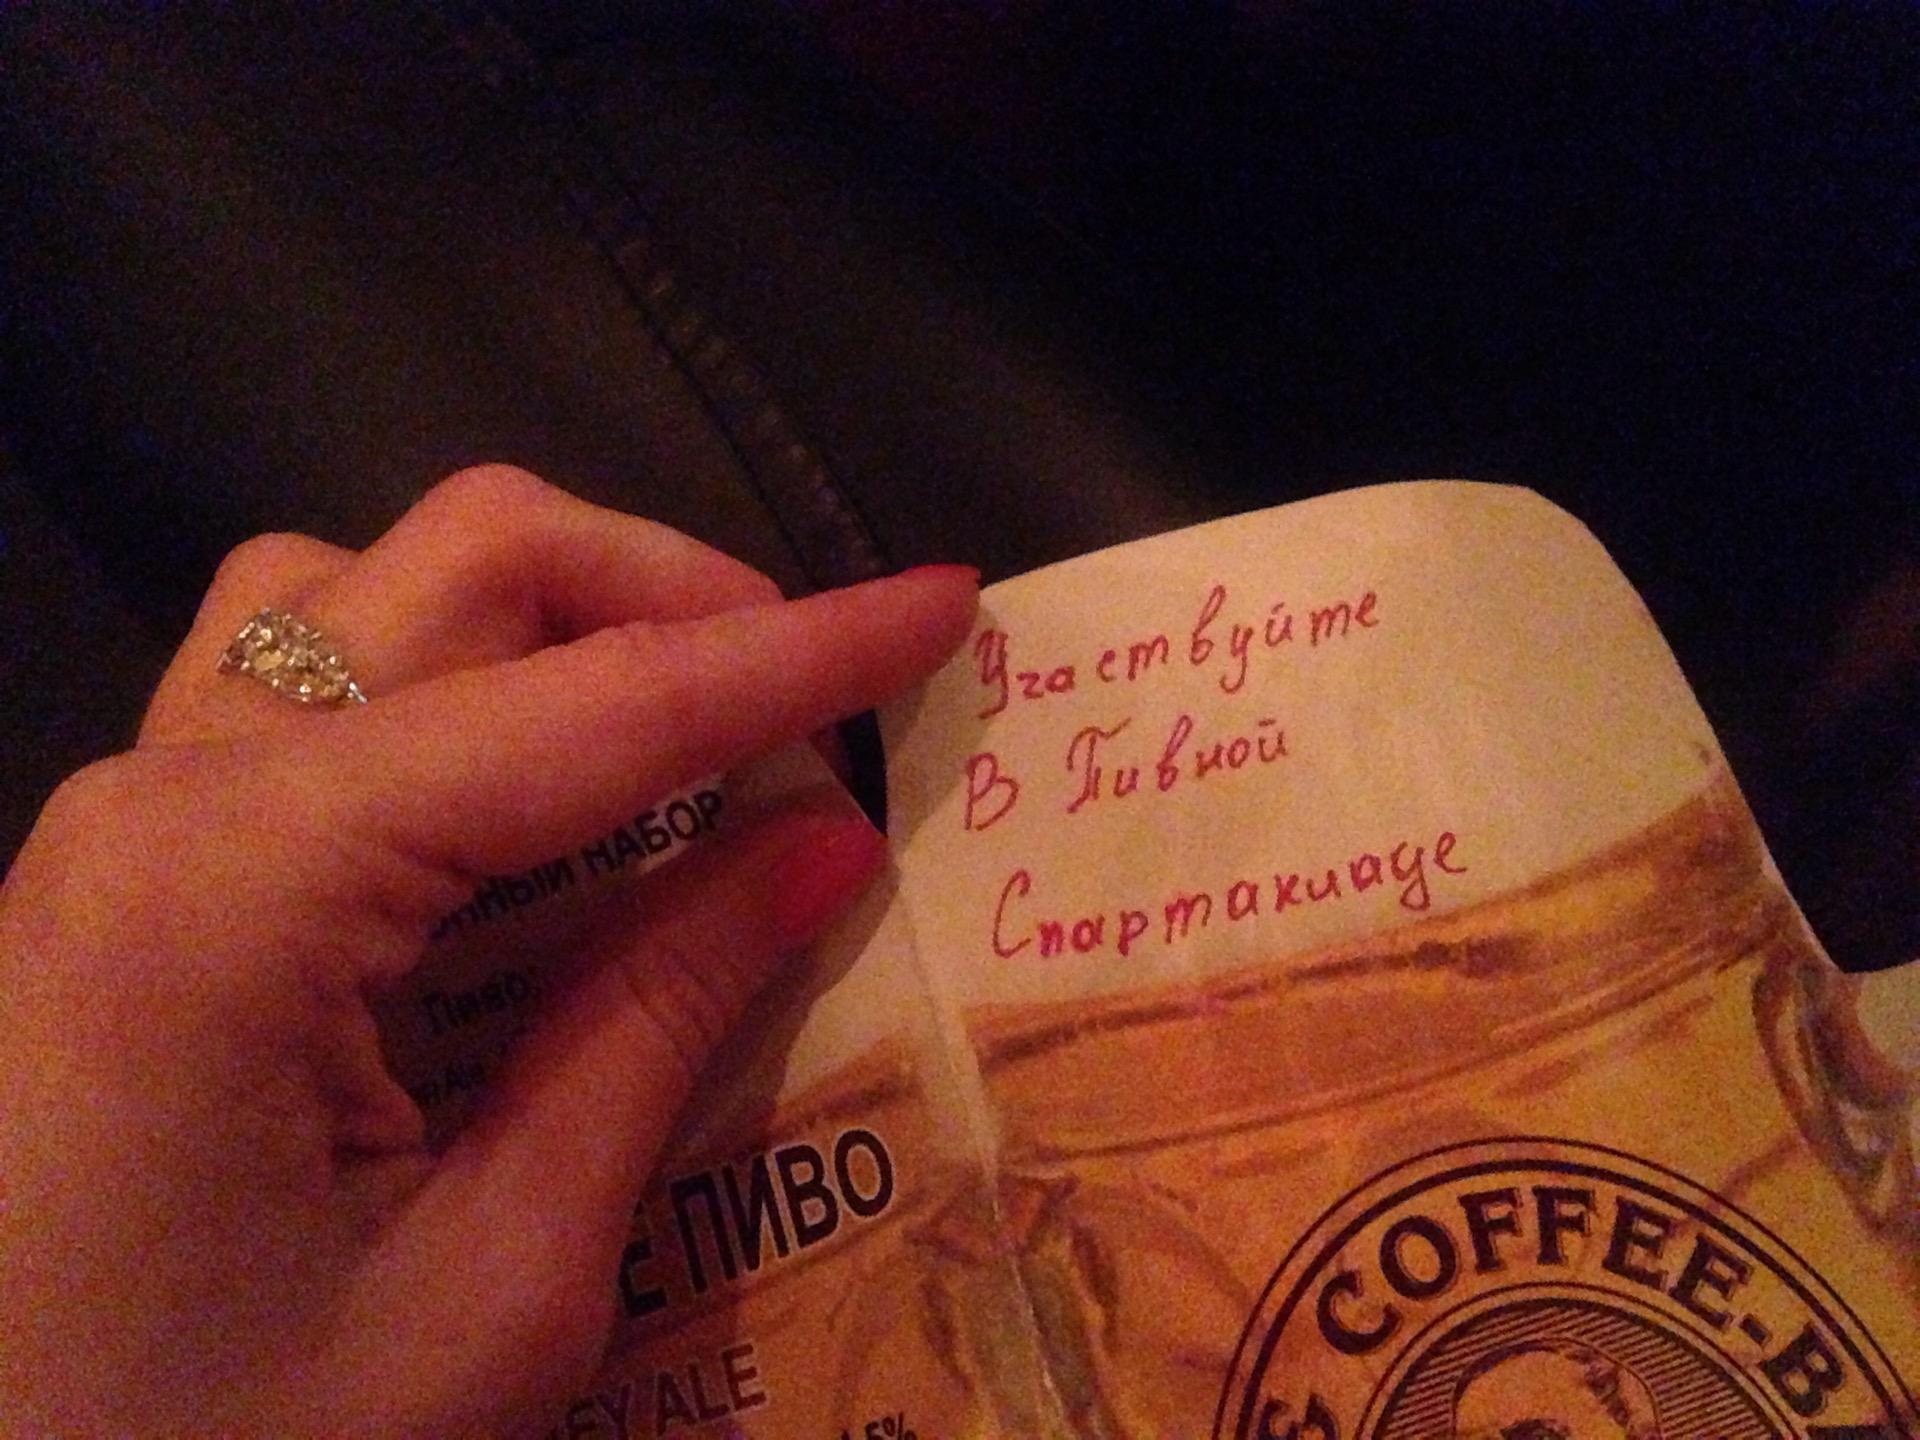 Участвуйте
В Пивной
Спартакиаде
НАБОР
Пиво,
ПИВО
ALE
COFFEE-BA